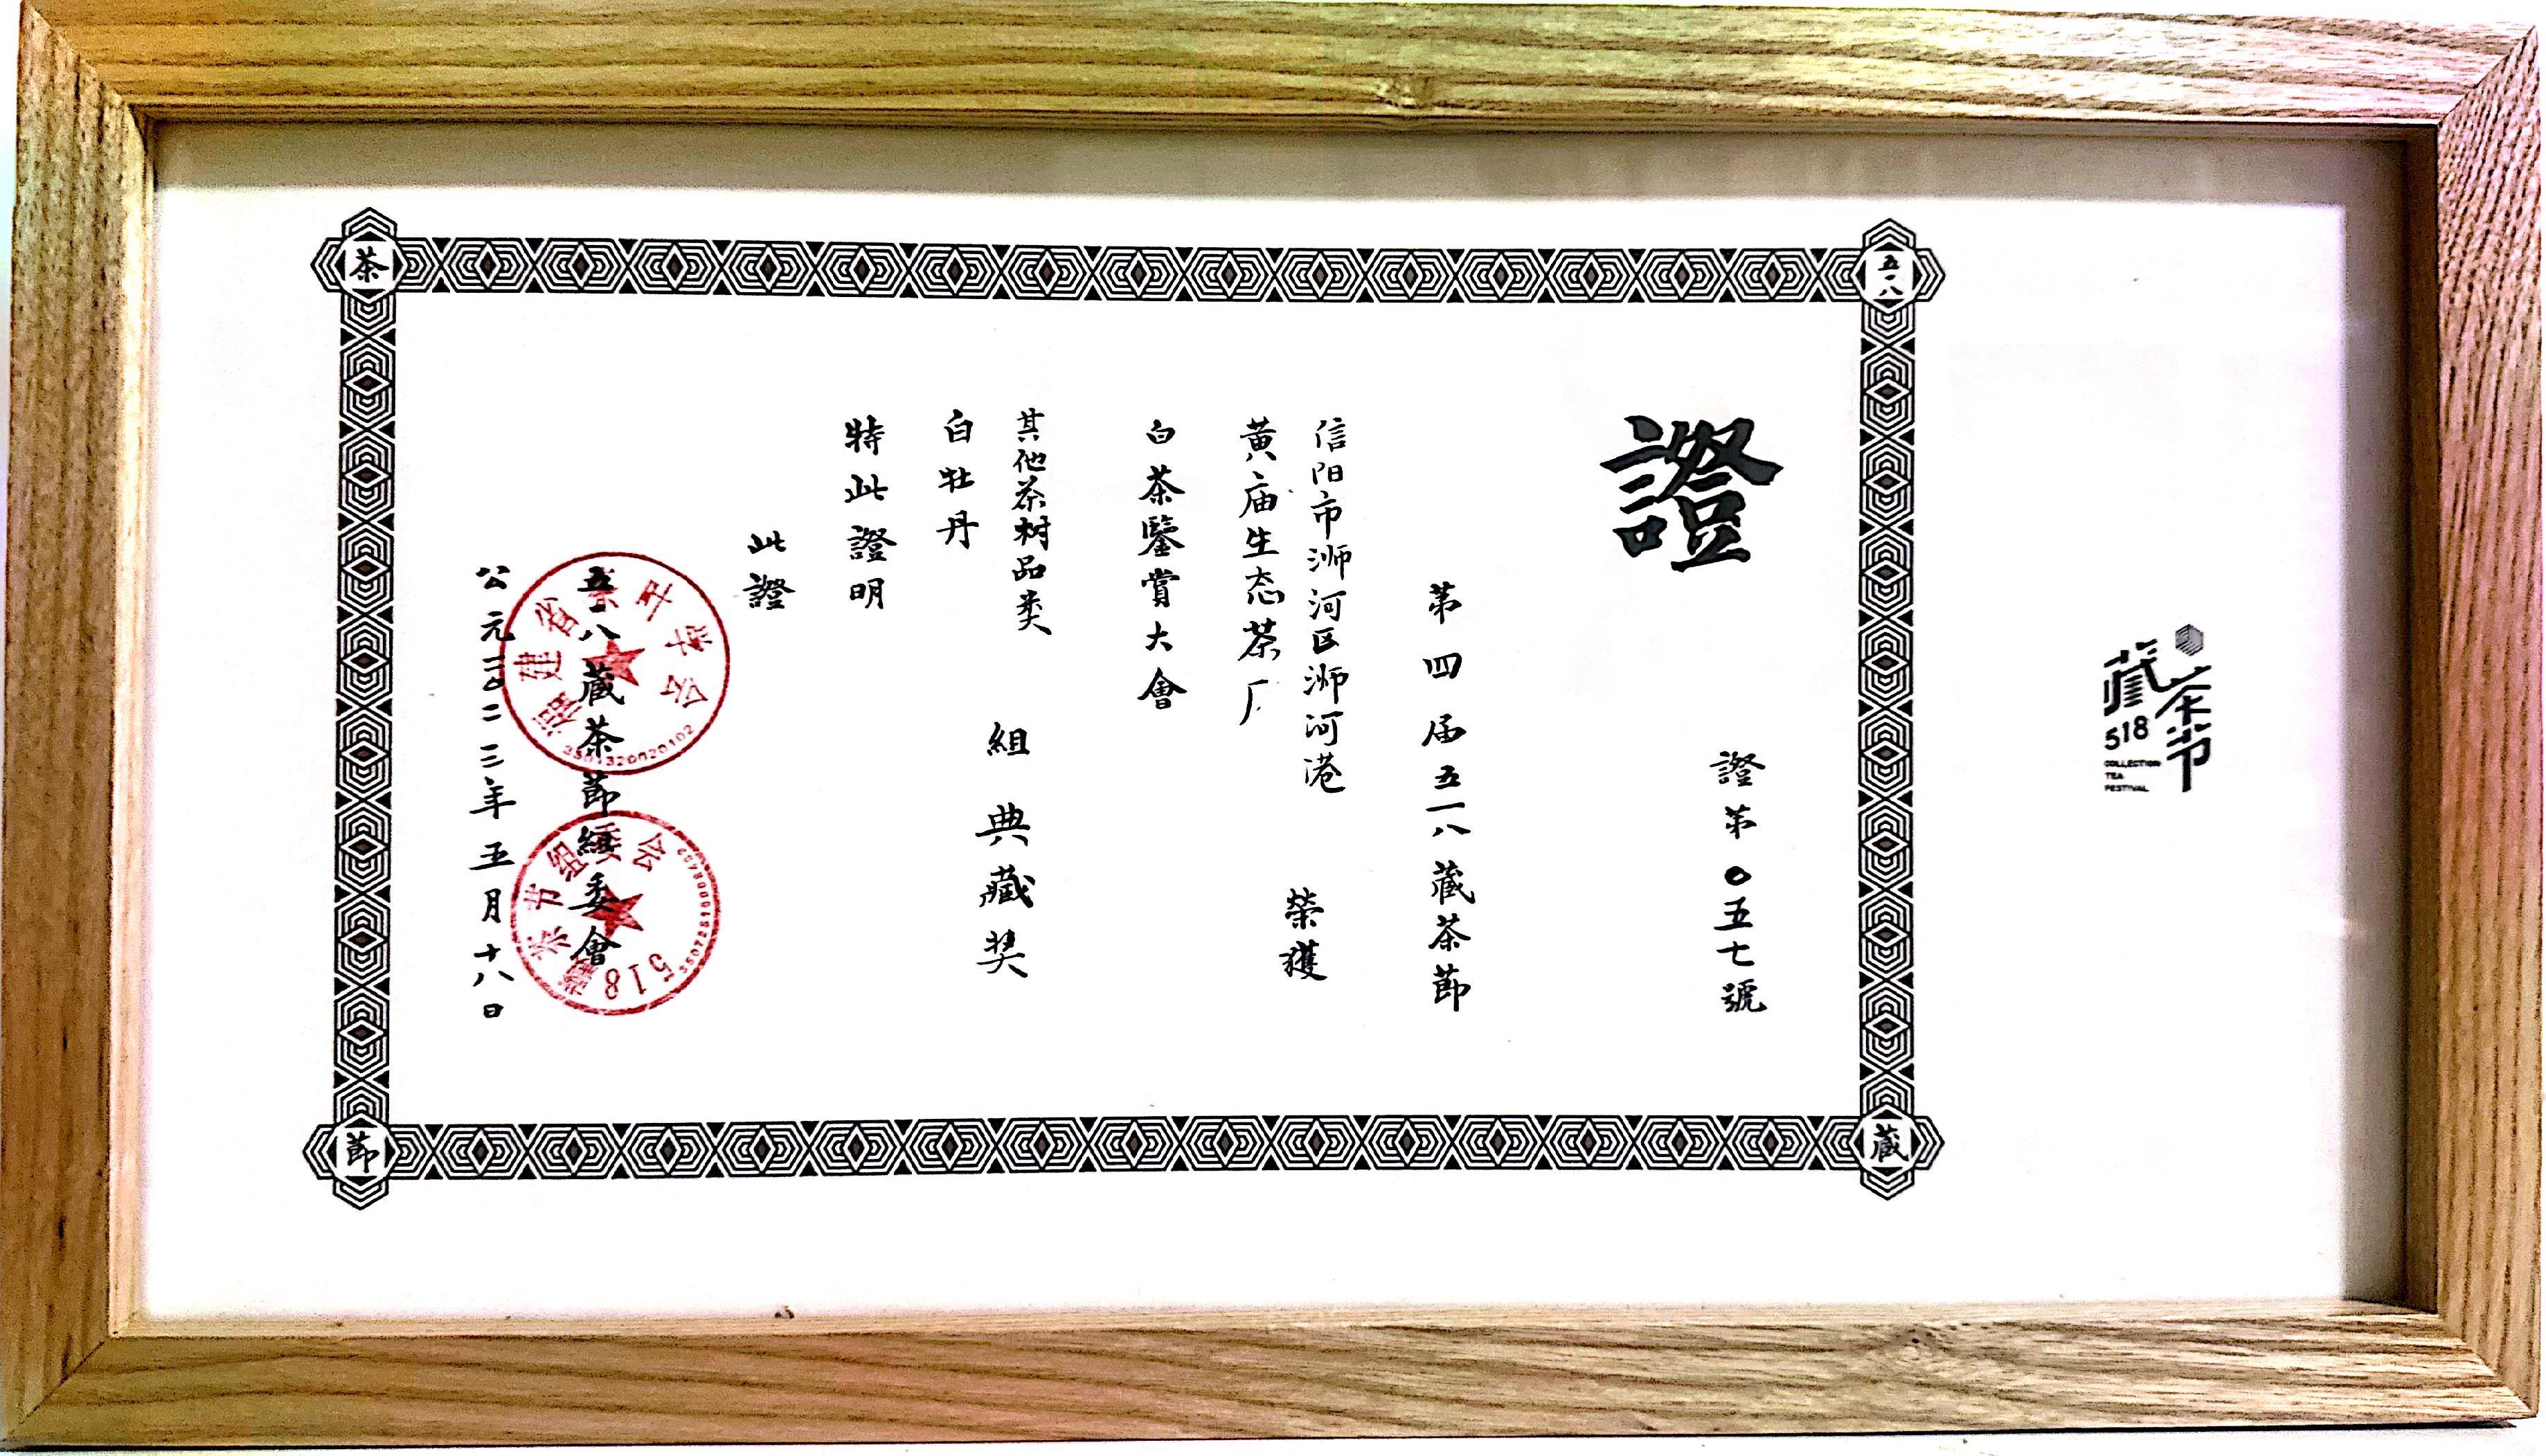 藏茶节
518
COLLECTION
TEA
FESTIVAL
五一八
藏
茶
節
證
證第〇五七號
第四届五一八藏茶節
信阳市浉河区浉河港
黄庙生态茶厂
榮獲
白茶鑒賞大會
其他茶树品类
白牡丹
組典藏奖
特此證明
此證
五一八藏茶節組委會
公元二〇二三年五月十八日
518藏茶节组委会